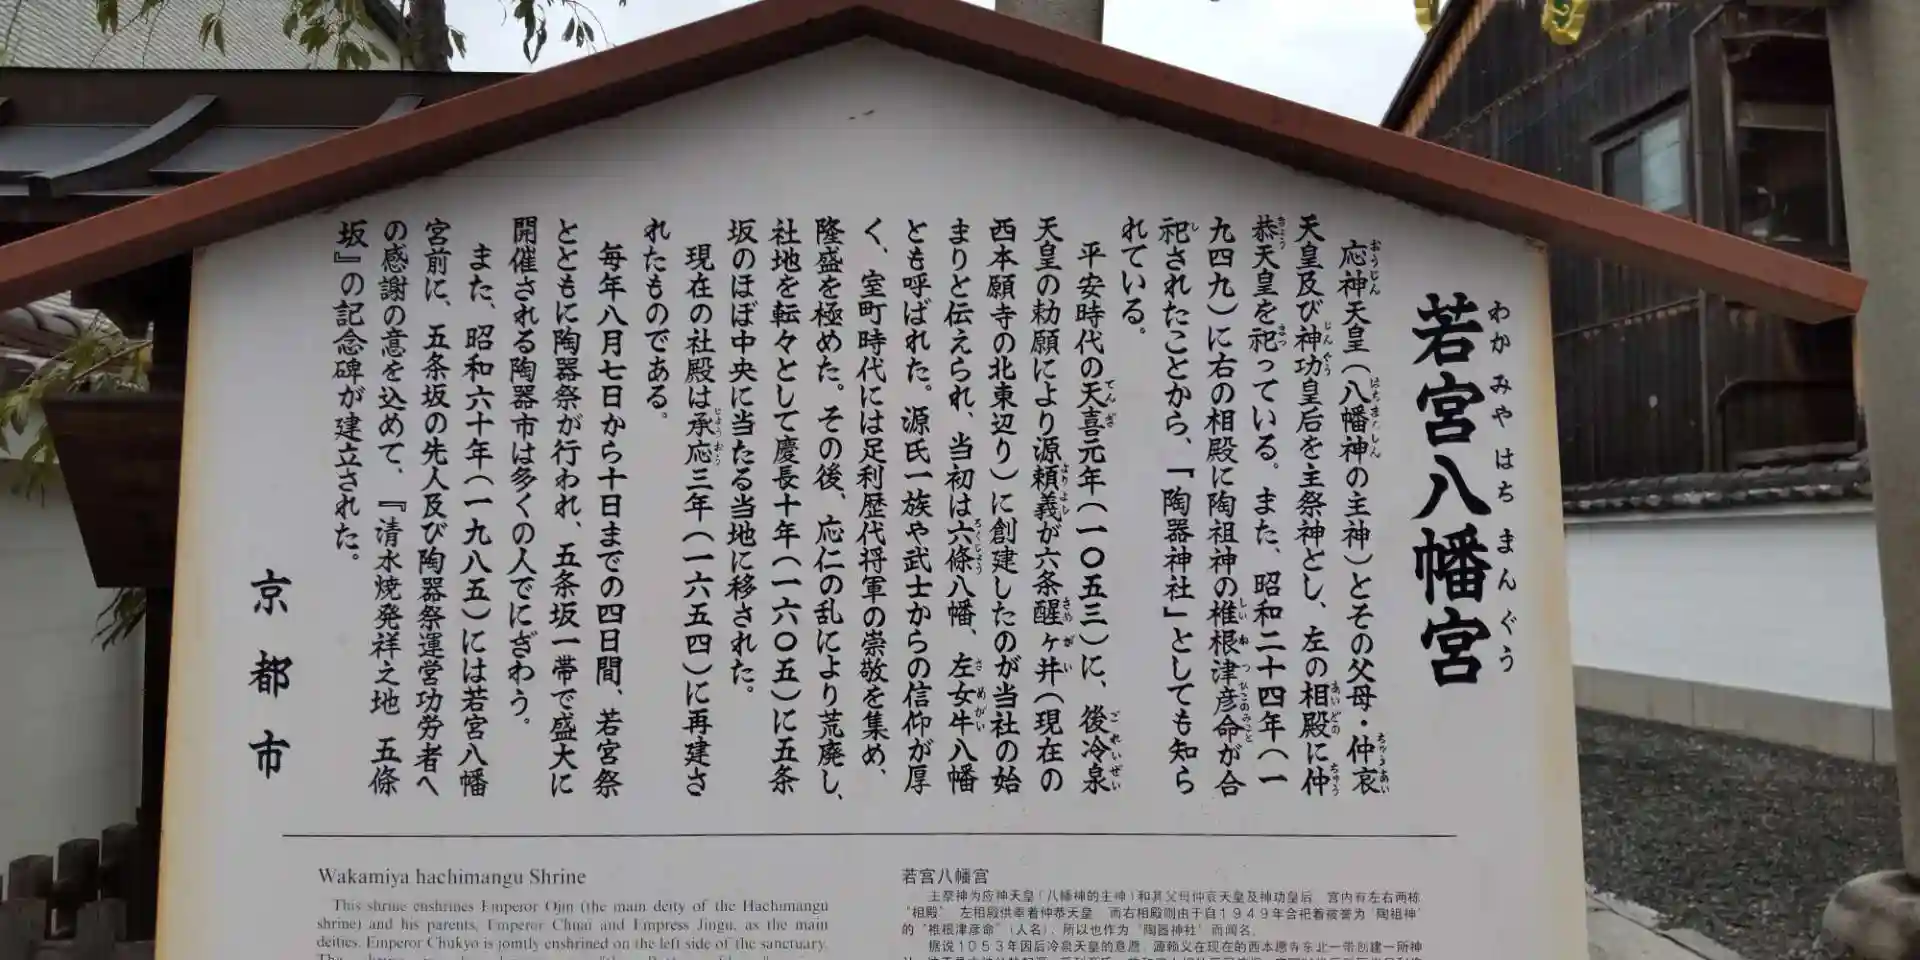 若宮八幡宮
わかみやはちまんぐう
応神天皇（八幡神の主神）とその父母・仲哀
天皇及び神功皇后を主祭神とし、左の相殿に仲
恭天皇を祀っている。また、昭和二十四年（一
九四九）に右の相殿に陶祖神の椎根津彦命が合
祀されたことから、「陶器神社」としても知ら
れている。
平安時代の天喜元年（一〇五三）に、後冷泉
天皇の勅願により源頼義が六条醒ヶ井（現在の
西本願寺の北東辺り）に創建したのが当社の始
まりと伝えられ、当初は六條八幡、左女牛八幡
とも呼ばれた。源氏一族や武士からの信仰が厚
く、室町時代には足利歴代将軍の崇敬を集め、
隆盛を極めた。その後、応仁の乱により荒廃し、
社地を転々として慶長十年（一六〇五）に五条
坂のほぼ中央に当たる当地に移された。
現在の社殿は承応三年（一六五四）に再建さ
れたものである。
毎年八月七日から十日までの四日間、若宮祭
とともに陶器祭が行われ、五条坂一帯で盛大に
開催される陶器市は多くの人でにぎわう。
また、昭和六十年（一九八五）には若宮八幡
宮前に、五条坂の先人及び陶器祭運営功労者へ
の感謝の意を込めて、『清水焼発祥之地 五條
坂』の記念碑が建立された。
京都市
Wakamiya hachimangu Shrine
This shrine enshrines Emperor Ojin (the main deity of the Hachimangu
shrine) and his parents, Emperor Chuai and Empress Jingu, as the main
deities. Emperor Chukyo is jointly enshrined on the left side of the sanctuary.
若宫八幡宫
主祭神为应神天皇（八幡神的主神）和其父母仲哀天皇及神功皇后。宫内有左右两栋
“相殿”，左相殿供奉着仲恭天皇，而右相殿则由于自1949年合祀着被誉为“陶祖神”
的“椎根津彦命”（人名），所以也作为“陶器神社”而闻名。
据说1053年因后冷泉天皇的意愿，源赖义在现在的西本愿寺东北一带创建一所神